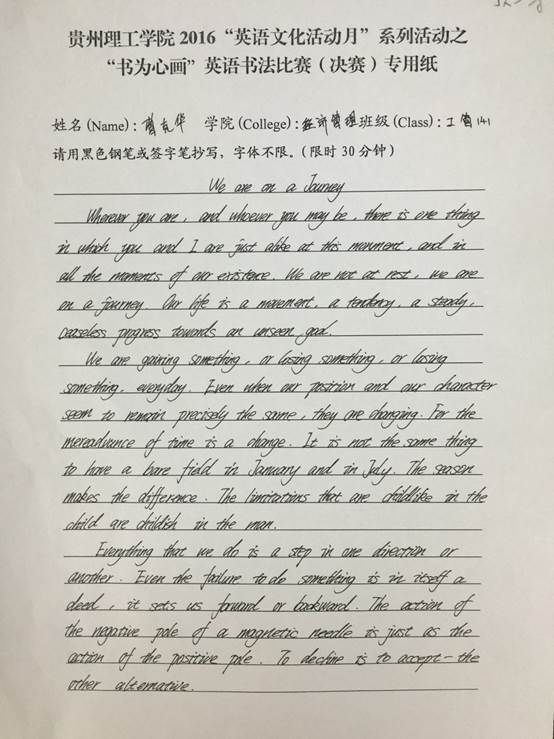 贵州理工学院 2016 “英语文化活动月” 系列活动之
“书为心画” 英语书法比赛（决赛）专用纸
姓名 (Name)：华 学院 (College)：经济管理 班级 (Class)：工管141
请用黑色钢笔或签字笔抄写，字体不限。（限时 30 分钟）
We are on a Journey
Wherever you are, and whoever you may be, there is one thing
in which you and I are just alike at this moment, and in
all the moments of our existence. We are not at rest, we are
on a journey. Our life is a movement, a tendency, a steady,
ceaseless progress towards an unseen goal.
We are gaining something, or losing something, or losing
something, everyday. Even when our position and our character
seem to remain precisely the same, they are changing. For the
mereadvance of time is a change. It is not the same thing
to have a bare field in January and in July. The season
makes the difference. The limitations that are childlike in the
child are childish in the man.
Everything that we do is a step in one direction or
another. Even the failure to do something is in itself a
deed, it sets us forward or backward. The action of
the negative pole of a magnetic needle is just as the
action of the positive pole. To decline is to accept-the
other alternative.